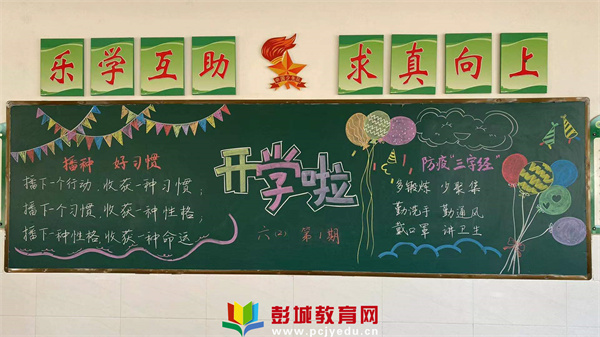 乐学互助
求真向上
播种 好习惯
播下一个行动,收获一种习惯;
播下一个习惯,收获一种性格;
播下一种性格,收获一种命运。
开学啦
六(2) 第1期
防疫"三字经"
多锻炼 少聚集
勤洗手 勤通风
戴口罩 讲卫生
彭城教育网
www.pcjyedu.cn